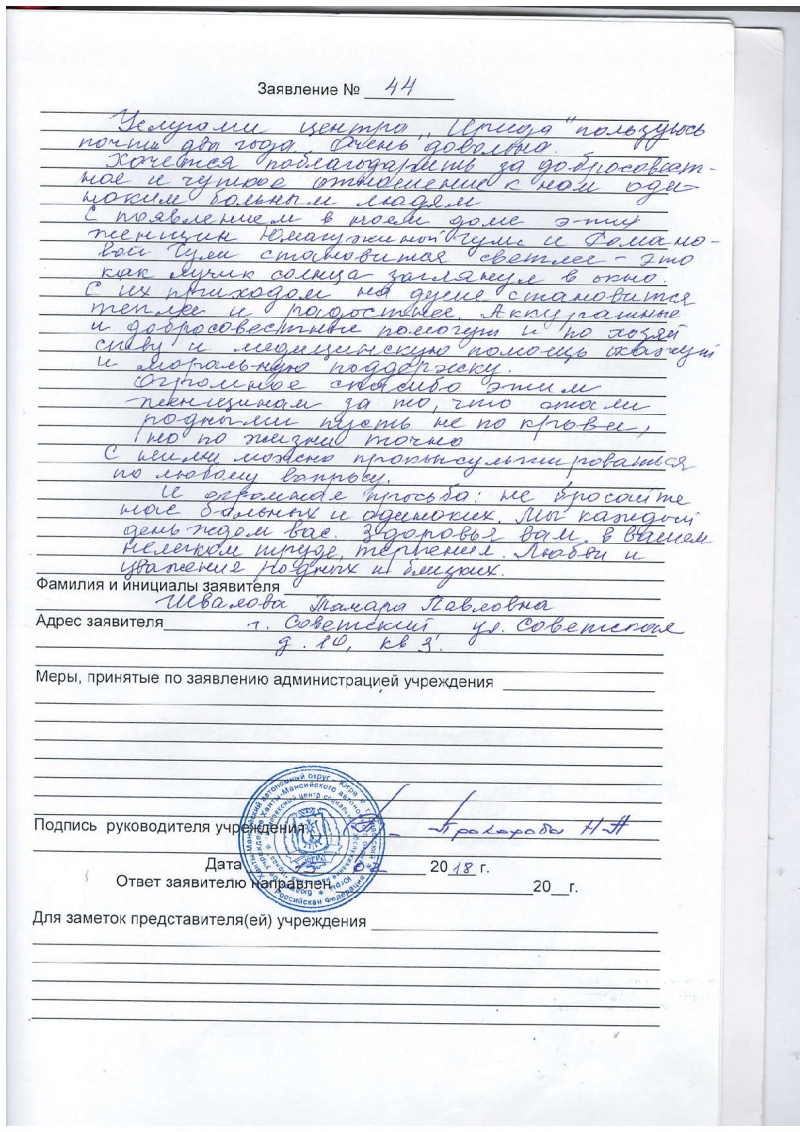 Заявление № 44
Услугами центра „Ирида" пользуюсь
почти два года. Очень довольна.
Хочется поблагодарить за добросовест-
ное и чуткое отношение к нам оди-
ноким больным людям
С появлением в моем доме этих
женщин Юмагужиной Гули и Романо-
вой Гули становится светлее - это
как лучик солнца заглянул в окно.
С их приходом на душе становится
теплее и радостнее. Аккуратные
и добросовестные помогут и по хозяй
ству и медицинскую помощь окажут
и моральную поддержку.
Огромное спасибо этим
женщинам за то, что стали
родными пусть не по крови,
но по жизни точно
С ними можно проконсультироваться
по любому вопросу.
И огромная просьба: не бросайте
нас больных и одиноких. Мы каждый
день ждем вас. Здоровья вам в вашем
нелегком труде, терпения. Любви и
уважения родных и близких.
Фамилия и инициалы заявителя
Швалова Тамара Павловна
Адрес заявителя г. Советский ул. Советская
д. 10, кв 3.
Меры, принятые по заявлению администрацией учреждения
Подпись руководителя учреждения Прохорова Н А
Дата 02 2018 г.
Ответ заявителю направлен 20 г.
Для заметок представителя(ей) учреждения
Российская Федерация